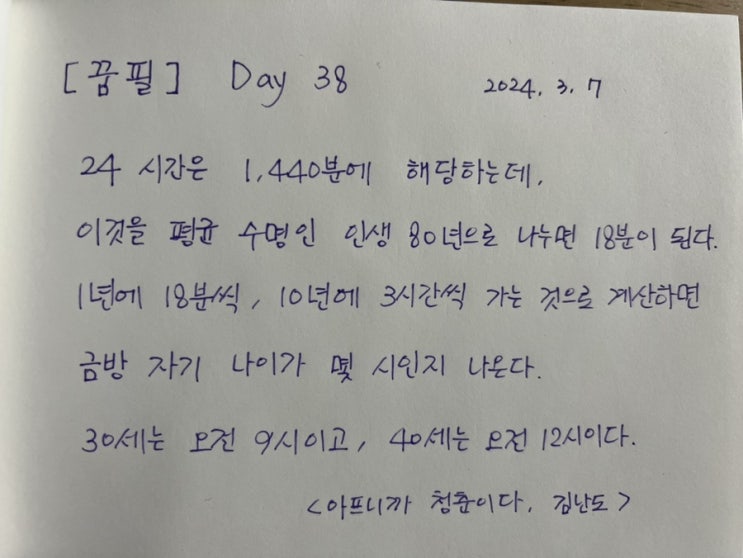 [꿈필] Day 38 2024. 3. 7
24 시간은 1,440분에 해당하는데,
이것을 평균 수명인 인생 80년으로 나누면 18분이 된다.
1년에 18분씩, 10년에 3시간씩 가는 것으로 계산하면
금방 자기 나이가 몇 시인지 나온다.
30세는 오전 9시이고, 40세는 오전 12시이다.
<아프니까 청춘이다, 김난도>